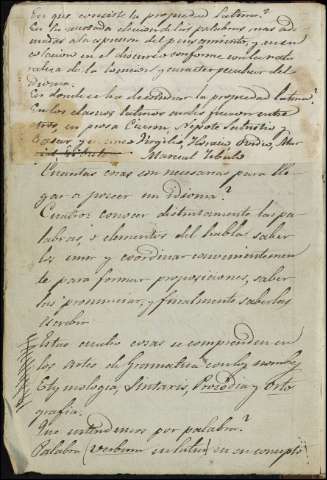 En que consiste la propiedad latina?
En la acertada eleccion de las palabras mas ad
a la espresion del pensamiento, y en su
colocacion en el discurso conforme con la natu
raleza de la locucion y caracter peculiar del
idioma.
En donde se ha de estudiar la propiedad latina?
En los clasicos latinos cuales fueron entre
otros, en prosa Ciceron, Nepote Salustio
Cesar, y en verso Virgilio, Horacio Ovidio, Mar
Marcial Tibulo
Cuantas cosas son necesarias para lle
gar a poseer un idioma?
Cuatro: conocer distintamente las pa
labras, o elementos del habla: saber
las unir y coordinar convenientemen
te para formar proposiciones, saber
las pronunciar, y finalmente saberlas
escribir
Estas cuatro cosas se comprenden en
los Artes de Gramatica con los nombres
Etymologia, Sintaxis, Prosodia y Orto
grafia.
Que entendemos por palabra?
Palabra (verbum en latin) en su concepto